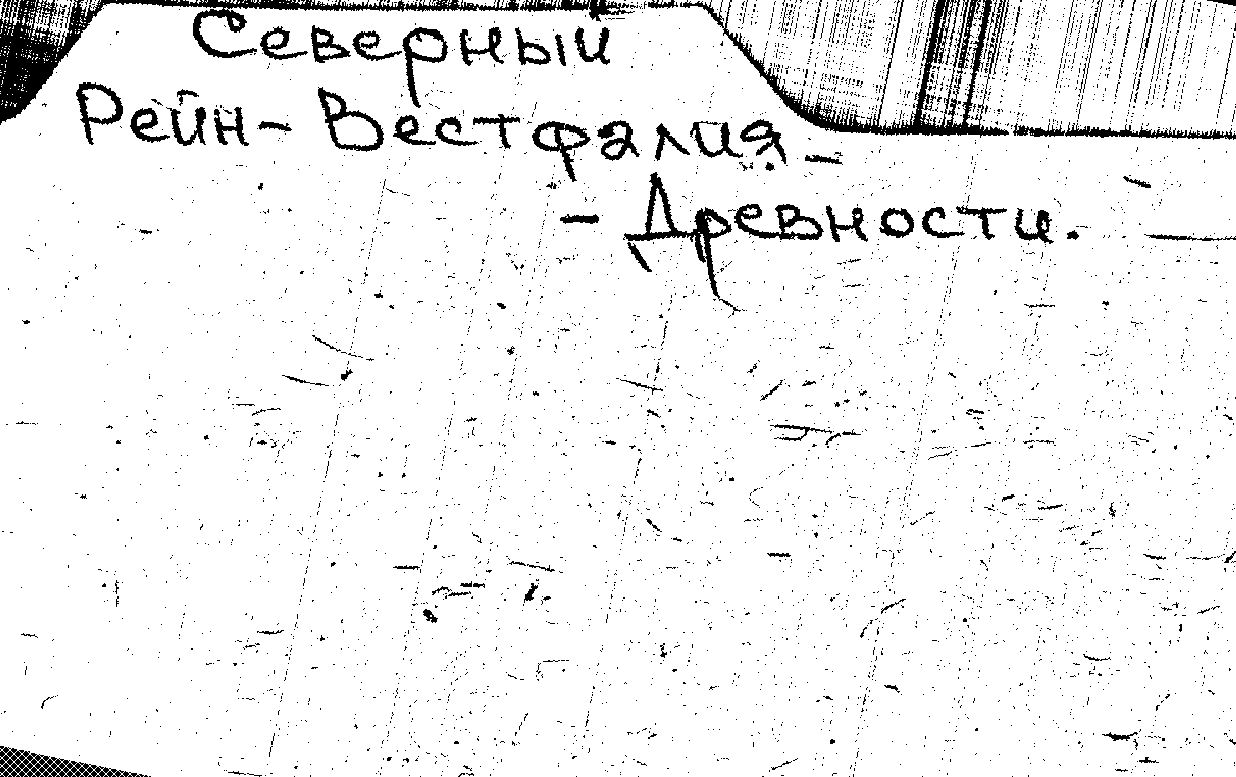 Северный
Рейн-Вестфалия-
- Древности.